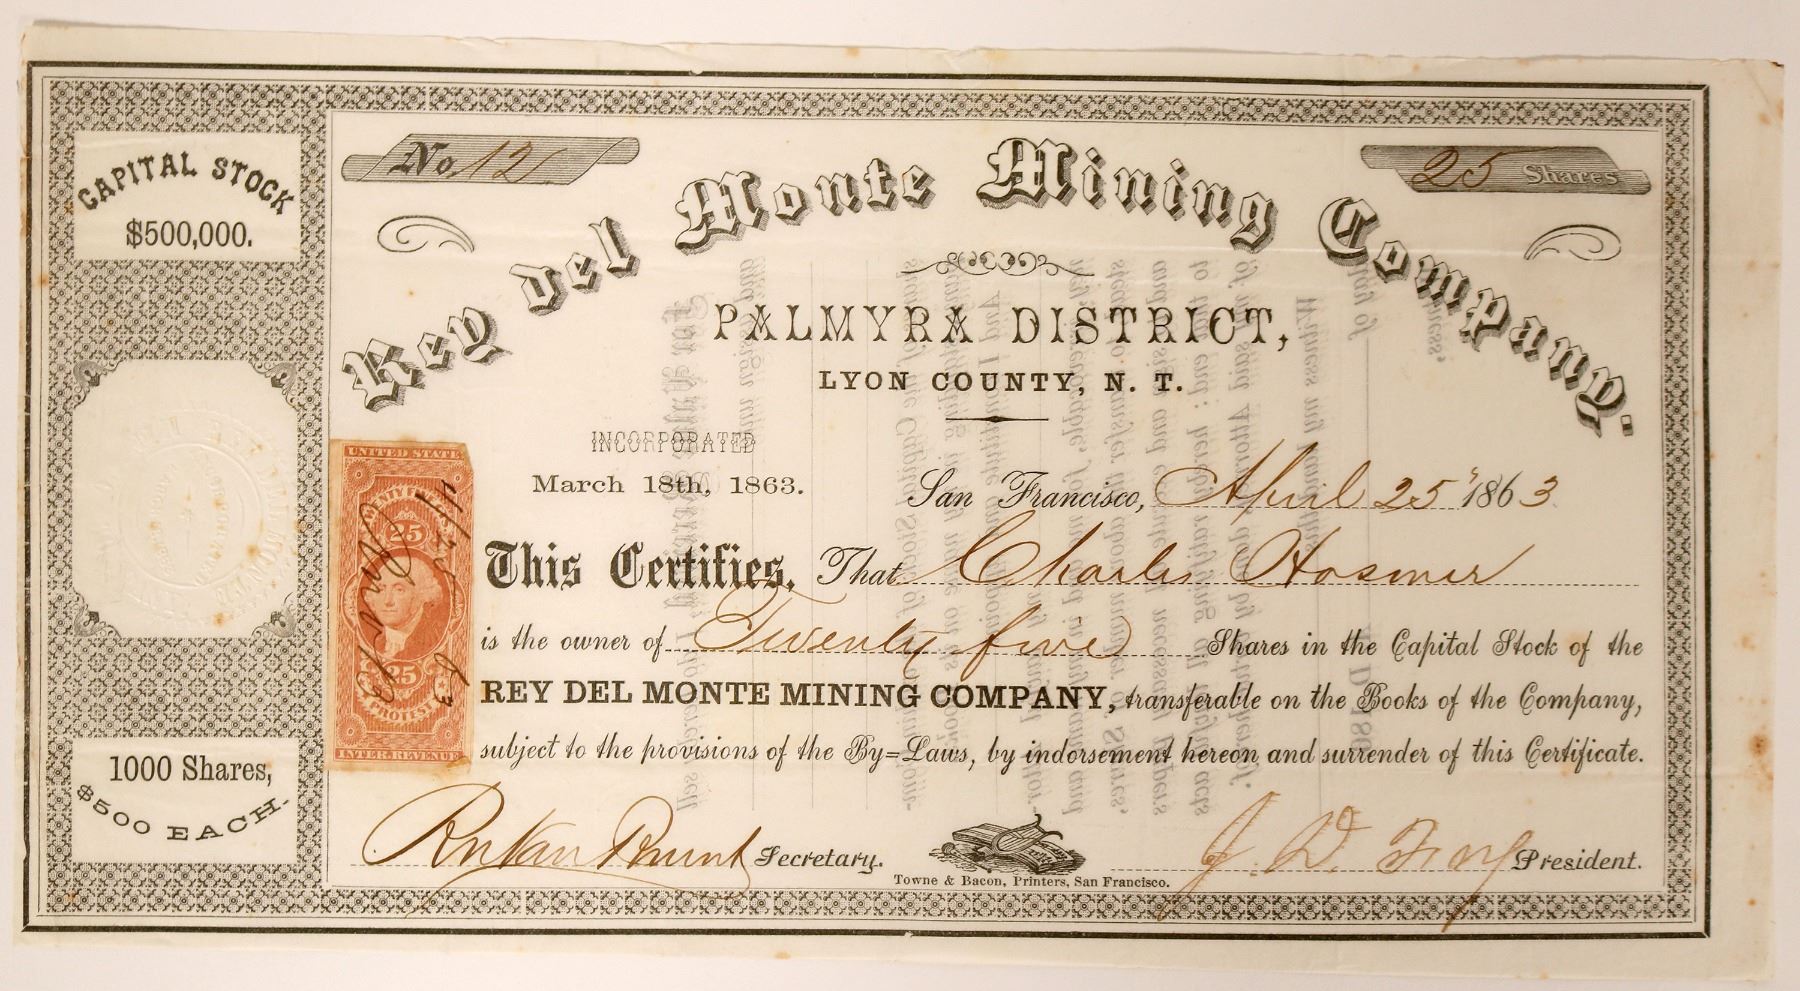 CAPITAL STOCK
$500,000.
No. 12
25 Shares
Rey del Monte Mining Company.
PALMYRA DISTRICT,
LYON COUNTY, N. T.
INCORPORATED
March 18th, 1863.
San Francisco, April 25" 1863
UNITED STATES
25
25
PROTEST
INTER. REVENUE
63
This Certifies, That Charles Hosmer
is the owner of Twenty five Shares in the Capital Stock of the
REY DEL MONTE MINING COMPANY, transferable on the Books of the Company,
subject to the provisions of the By=Laws, by indorsement hereon and surrender of this Certificate.
1000 Shares,
$500 EACH.
Secretary.
J. W. President.
Towne & Bacon, Printers, San Francisco.